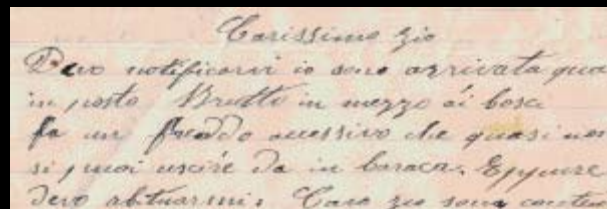 Carissimo zio
Devo notificarvi io sono arrivata qua
in posto Brutto in mezzo ai bosc
fa un freddo eccessivo che quasi non
si puoi uscire da in baraca. Eppure
devo abituarmi. Caro zio sono conten